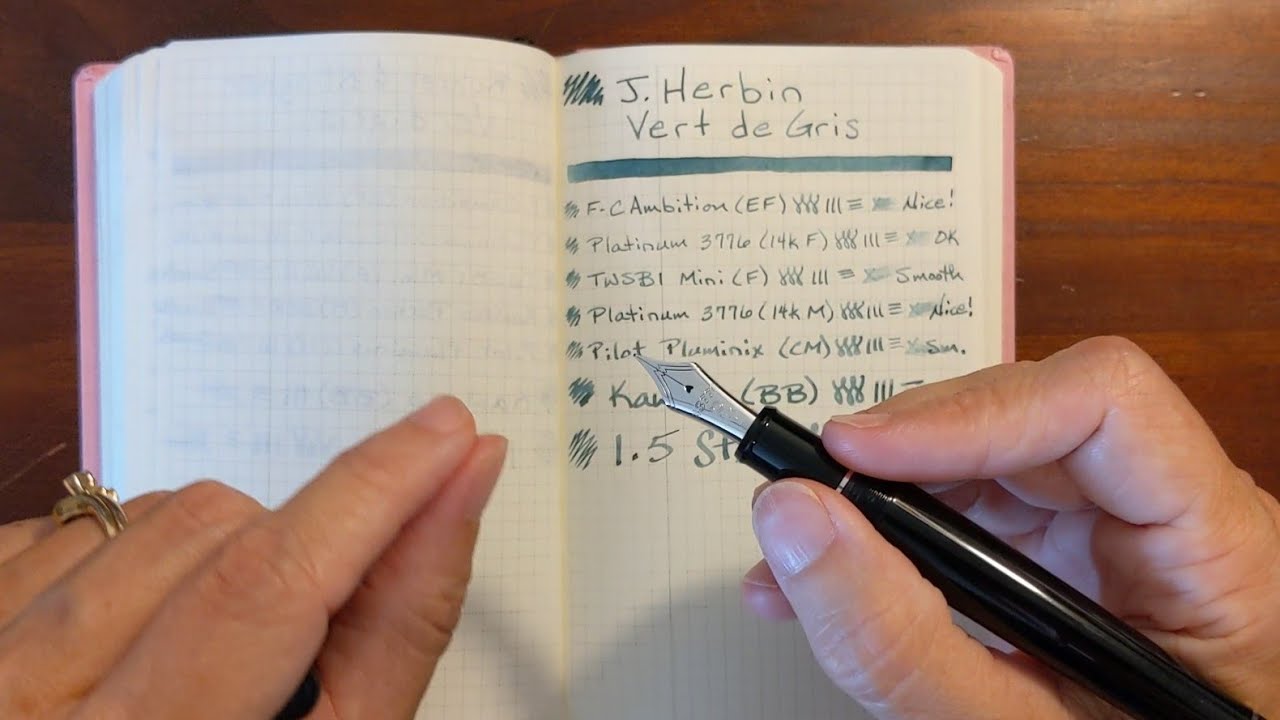 J. Herbin
Vert de Gris
F-C Ambition (EF) Nice!
Platinum 3776 (14k F) OK
TWSBI Mini (F) Smooth
Platinum 3776 (14k M) Nice!
Pilot Pluminix (CM) Sm.
(BB)
1.5